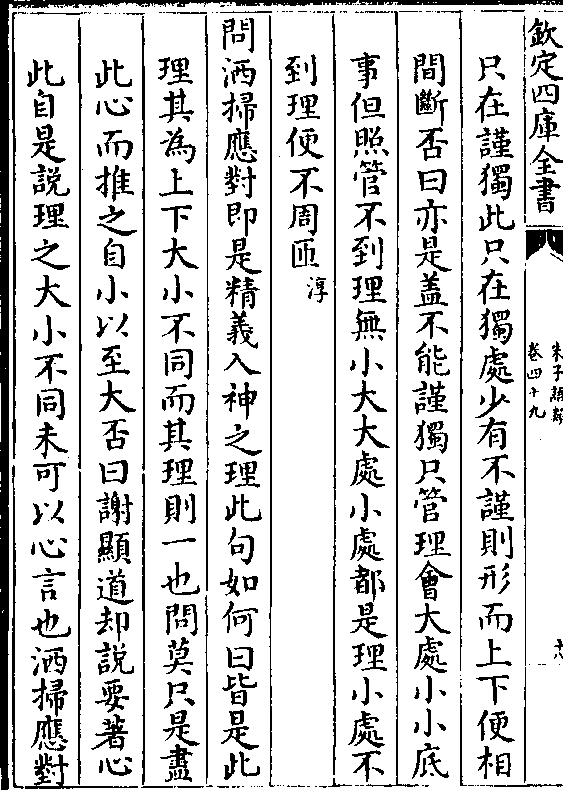 欽定四庫全書
朱子語類
卷四十九
只在謹獨此只在獨處少有不謹則形而上下便相
間斷否曰亦是蓋不能謹獨只管理會大處小小底
事但照管不到理無小大大處小處都是理小處不
到理便不周匝淳
問洒掃應對即是精義入神之理此句如何曰皆是此
理其為上下大小不同而其理則一也問莫只是盡
此心而推之自小以至大否曰謝顯道却說要著心
此自是說理之大小不同未可以心言也洒掃應對